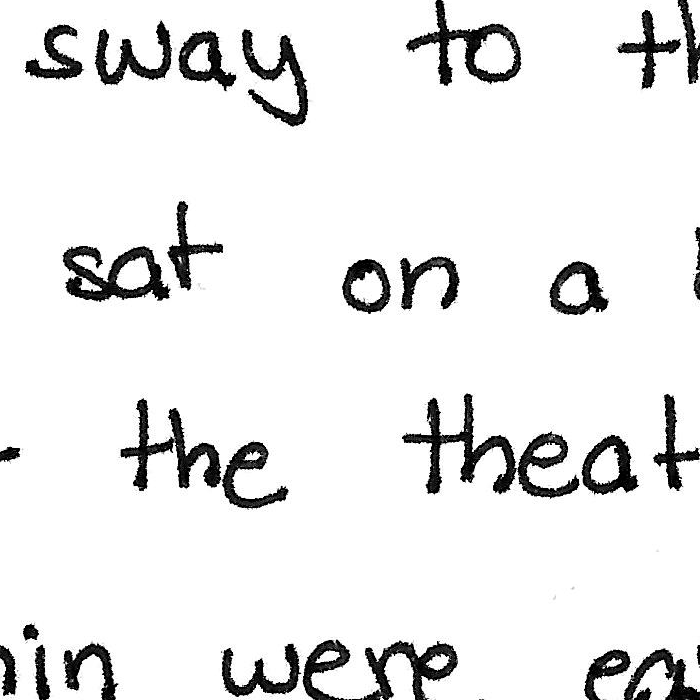 sway to th
sat on a
the theat
in were ea